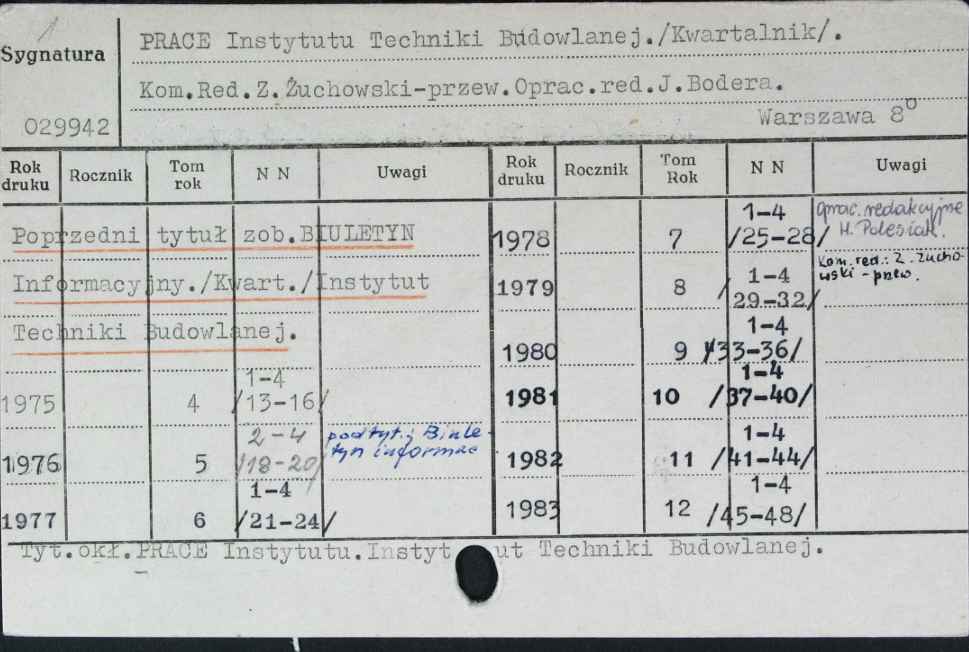 1
Sygnatura
029942
PRACE Instytutu Techniki Budowlanej./Kwartalnik/.
Kom.Red.Z.Żuchowski-przew.Oprac.red.J.Bodera.
Warszawa 8°
Rok druku Rocznik Tom rok N N Uwagi
Rok druku Rocznik Tom Rok N N Uwagi
Poprzedni tytuł zob.BIULETYN
Informacyjny./Kwart./Instytut
Techniki Budowlanej.
1975 4 1-4 /13-16/
1976 5 2-4 /18-20/ podtyt.: Biule-
tyn informac
1977 6 1-4 /21-24/
1978 7 1-4 /25-28/ Oprac. redakcyjne
H. Polesiak.
1979 8 1-4 /29-32/ Kom. red.: Z. Żucho-
wski - przew.
1980 9 1-4 /33-36/
1981 10 1-4 /37-40/
1982 11 1-4 /41-44/
1983 12 1-4 /45-48/
Tyt.okł.PRACE Instytutu.Instyt ut Techniki Budowlanej.